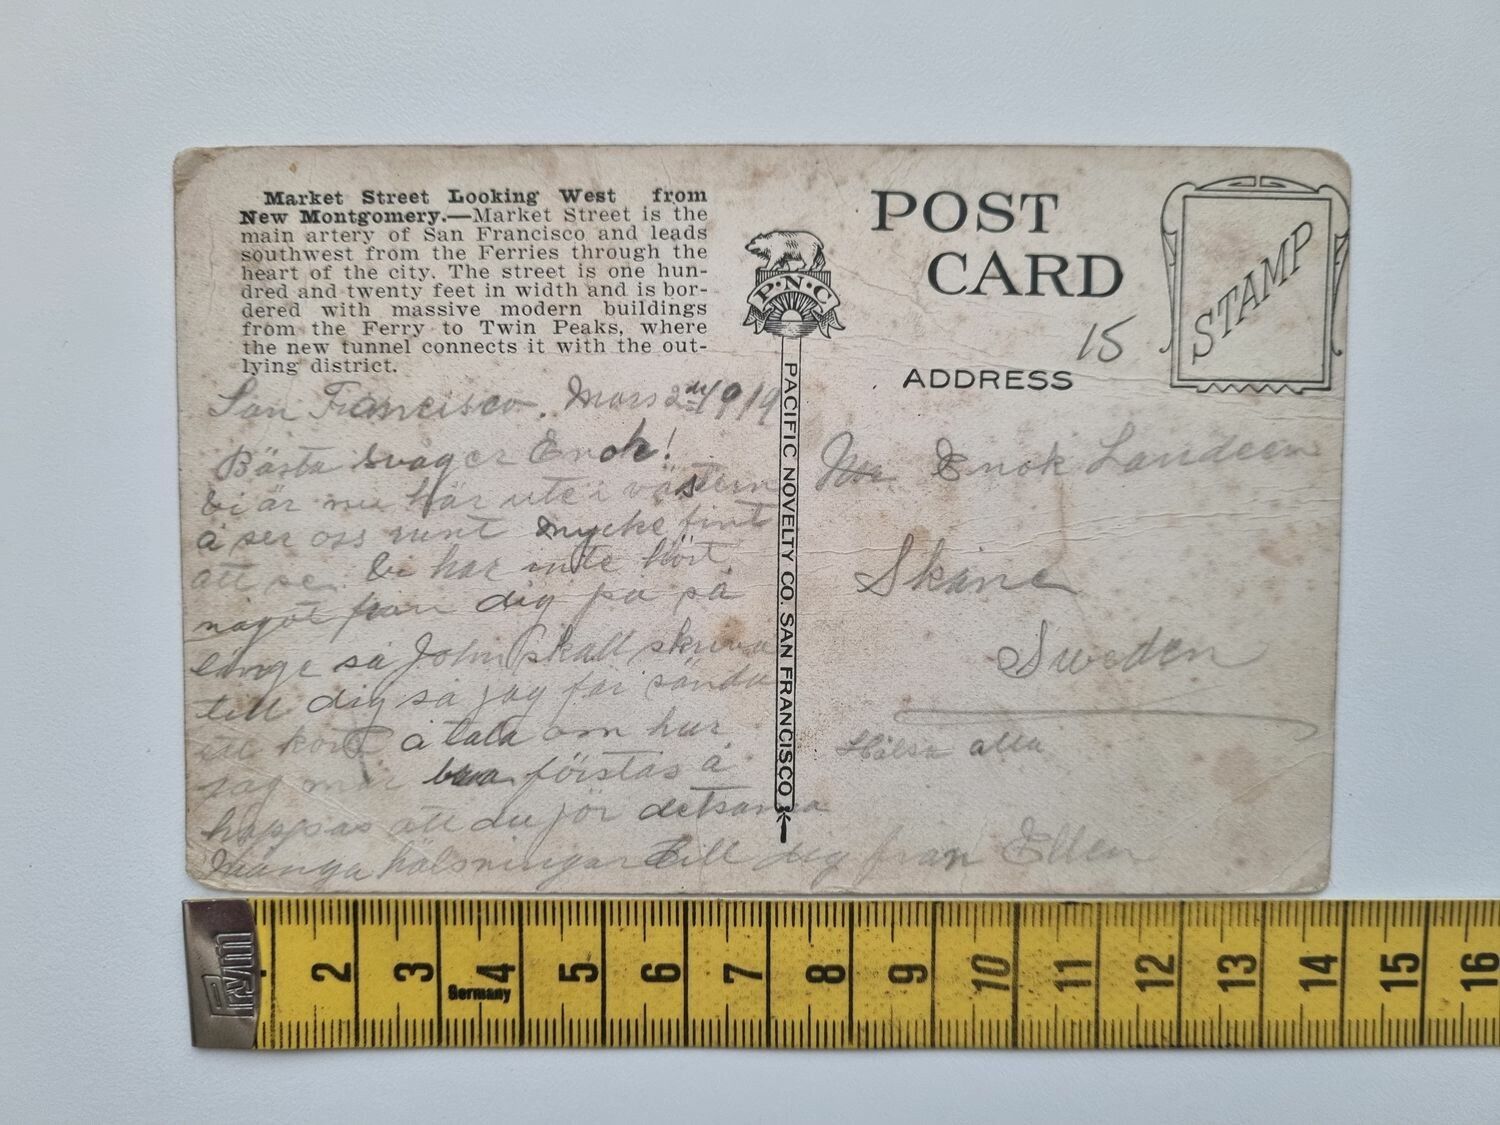 Market Street Looking West from
New Montgomery.—Market Street is the
main artery of San Francisco and leads
southwest from the Ferries through the
heart of the city. The street is one hun-
dred and twenty feet in width and is bor-
dered with massive modern buildings
from the Ferry to Twin Peaks, where
the new tunnel connects it with the out-
lying district.
San Francisco. Mars 2 1919
Bästa svåger Enok!
vi är nu här ute i västern
å ser oss runt mycke fint
att se. vi har inte hört
något från dig på så
länge så John skall skriva
till dig så jag får sända
ett kort å tala om hur
jag mår bra förstås å
hoppas att du jör detsamma
Många hälsningar till dig från Ellen
P.N.C
PACIFIC NOVELTY CO. SAN FRANCISCO
POST
CARD
STAMP
15
ADDRESS
Mr Enok Landeen
Skåne
Sweden
Hälsa alla
Prym
2 3 4 5 6 7 8 9 10 11 12 13 14 15 16
Germany